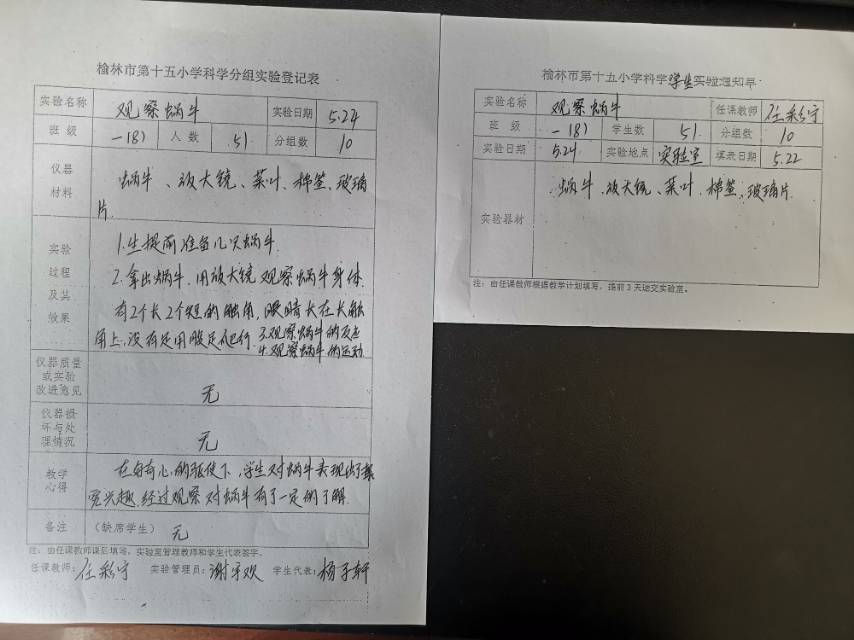 榆林市第十五小学科学分组实验登记表
实验名称 观察蜗牛 实验日期 5.24
班级 一(8) 人数 51 分组数 10
仪器材料 蜗牛、放大镜、菜叶、棉签、玻璃
片
实验过程及其效果 1.生提前准备几只蜗牛.
2.拿出蜗牛.用放大镜观察蜗牛身体.
有2个长2个短的触角,眼睛长在长触
角上,没有足用腹足爬行. 3.观察蜗牛的反应
4.观察蜗牛的运动
仪器质量或实验改进意见 无
仪器损坏与处理情况 无
教学心得 在好奇心的驱使下,学生对蜗牛表现出了
兴趣.经过观察对蜗牛有了一定的了解.
备注 (缺席学生) 无
注:由任课教师课后填写,实验室管理教师和学生代表签字。
任课教师: 任彩宁 实验管理员: 谢宇欢 学生代表: 杨子轩
榆林市第十五小学科学学生实验通知单
实验名称 观察蜗牛 任课教师 任彩宁
班级 一(8) 学生数 51 分组数 10
实验日期 5.24 实验地点 实验室 填表日期 5.22
实验器材 蜗牛、放大镜、菜叶、棉签、玻璃片.
注:由任课教师根据教学计划填写,提前2天送交实验室。